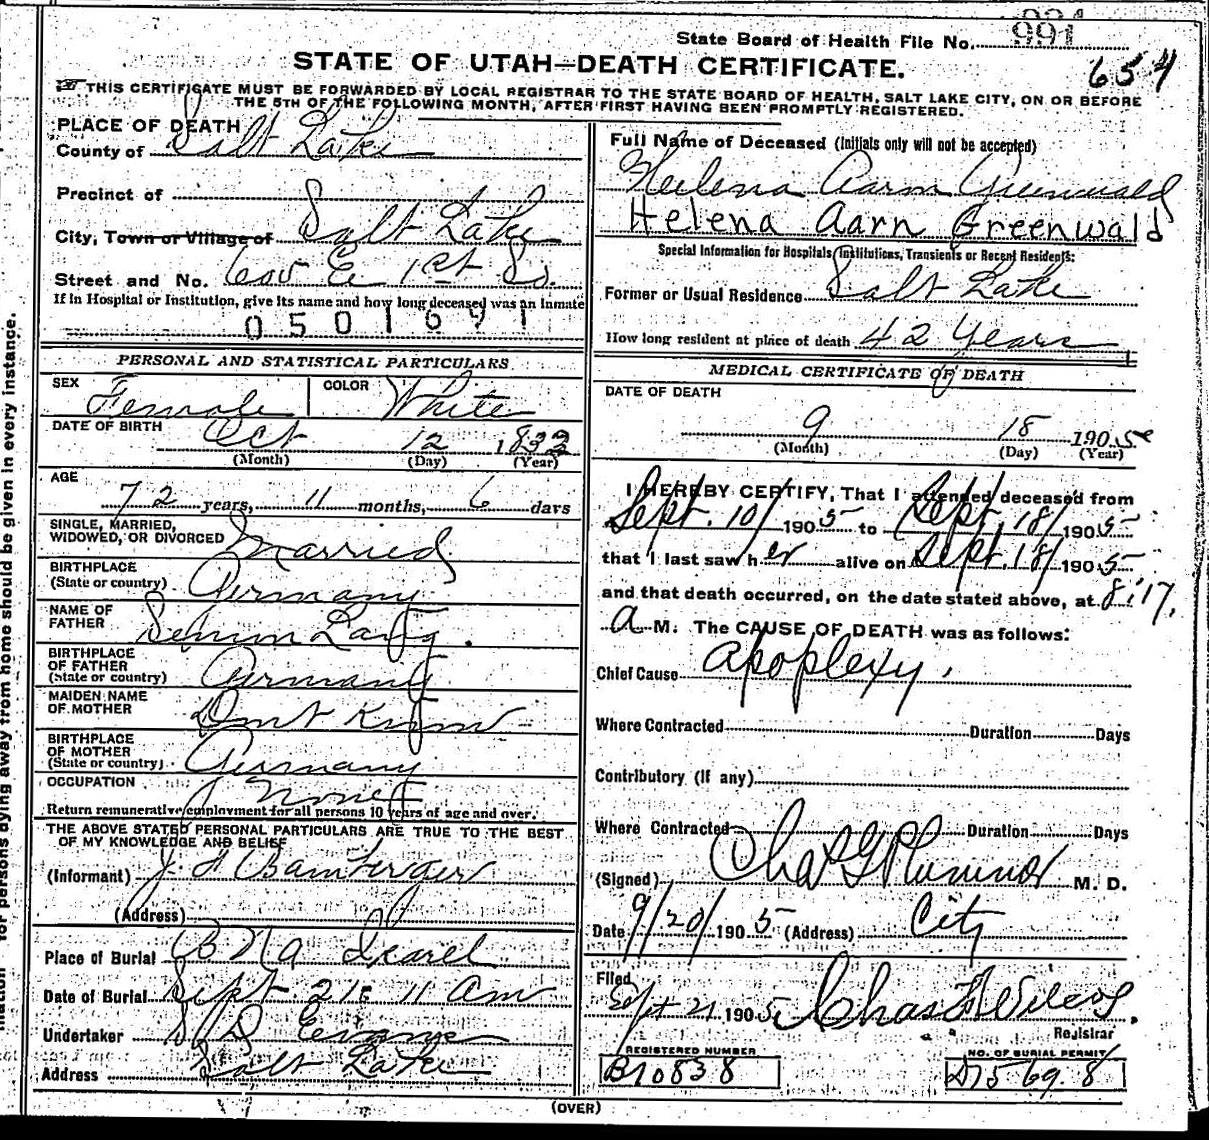 State Board of Health File No. 991
654
STATE OF UTAH—DEATH CERTIFICATE.
THIS CERTIFICATE MUST BE FORWARDED BY LOCAL REGISTRAR TO THE STATE BOARD OF HEALTH, SALT LAKE CITY, ON OR BEFORE
THE 5TH OF THE FOLLOWING MONTH, AFTER FIRST HAVING BEEN PROMPTLY REGISTERED.
PLACE OF DEATH
County of Salt Lake
Precinct of
City, Town or Village of Salt Lake
Street and No. 600 E 1st So.
If in Hospital or Institution, give its name and how long deceased was an inmate
0501691
PERSONAL AND STATISTICAL PARTICULARS
SEX Female COLOR White
DATE OF BIRTH Oct 12 1832
(Month) (Day) (Year)
AGE
72 years, 11 months, 6 days
SINGLE, MARRIED,
WIDOWED, OR DIVORCED Married
BIRTHPLACE
(State or country) Germany
NAME OF
FATHER
BIRTHPLACE
OF FATHER
(State or country) Germany
MAIDEN NAME
OF MOTHER Dont Know
BIRTHPLACE
OF MOTHER
(State or country) Germany
OCCUPATION None
Return remunerative employment for all persons 10 years of age and over.
THE ABOVE STATED PERSONAL PARTICULARS ARE TRUE TO THE BEST
OF MY KNOWLEDGE AND BELIEF
(Informant) J H Bamberger
(Address)
Place of Burial B Na Israel
Date of Burial Sept 21 11 am
Undertaker Evans
Address Salt Lake
Full Name of Deceased (Initials only will not be accepted)
Helena Aarn Greenwald
Helena Aarn Greenwald
Special Information for Hospitals, Institutions, Transients or Recent Residents:
Former or Usual Residence Salt Lake
How long resident at place of death 42 Years
MEDICAL CERTIFICATE OF DEATH
DATE OF DEATH
9 18 1905
(Month) (Day) (Year)
I HEREBY CERTIFY, That I attended deceased from
Sept. 10/ 1905 to Sept. 18/ 1905
that I last saw her alive on Sept. 18/ 1905
and that death occurred, on the date stated above, at 8:17,
a M. The CAUSE OF DEATH was as follows:
Chief Cause apoplexy,
Where Contracted Duration Days
Contributory (If any)
Where Contracted Duration Days
(Signed) Chas G Plummer M. D.
Date 9/20/ 1905 (Address) City
Filed
Sept 21 1905 Chas Wilcox.
Registrar
REGISTERED NUMBER
B10838
NO. OF BURIAL PERMIT
D7569.8
(OVER)
for persons dying away from home should be given in every instance.